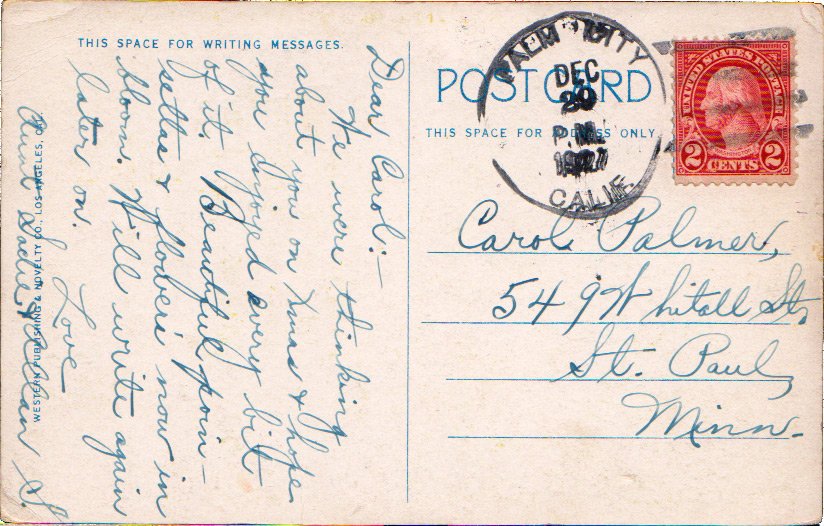 THIS SPACE FOR WRITING MESSAGES.
Dear Carol:-
We were thinking
about you on Xmas & hope
you enjoyed every bit
of it. Beautiful poin-
settas & flowers now in
bloom. Will write again
later on.
Love
Aunt Sadie & Allan S.
WESTERN PUBLISHING & NOVELTY CO., LOS ANGELES, CAL.
POST CARD
THIS SPACE FOR ADDRESS ONLY
PALM CITY
DEC
29
P.M.
1927
CALIF.
UNITED STATES POSTAGE
2 CENTS 2
Carol Palmer,
549 Whitall St,
St. Paul,
Minn.